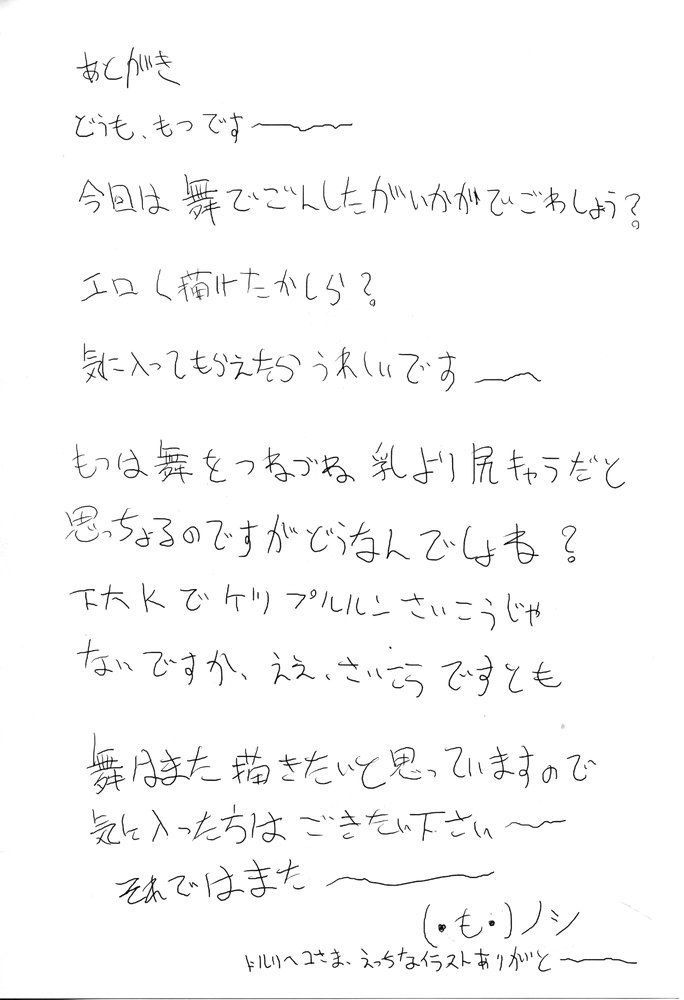 あとがき
どうも、もつです〜
今回は舞でごんしたがいかがでごわしょう？
エロく描けたかしら？
気に入ってもらえたらうれしいです〜
もつは舞をつねづね乳より尻キャラだと
思っちょるのですがどうなんでしょね？
下大Kでケツプルルンさいこうじゃ
ないですか、ええ、さいこうですとも
舞はまた描きたいと思っていますので
気に入った方はごきたい下さい〜
それではまた〜
(・も・)ノシ
トルリヘコさま、えっちなイラストありがと〜